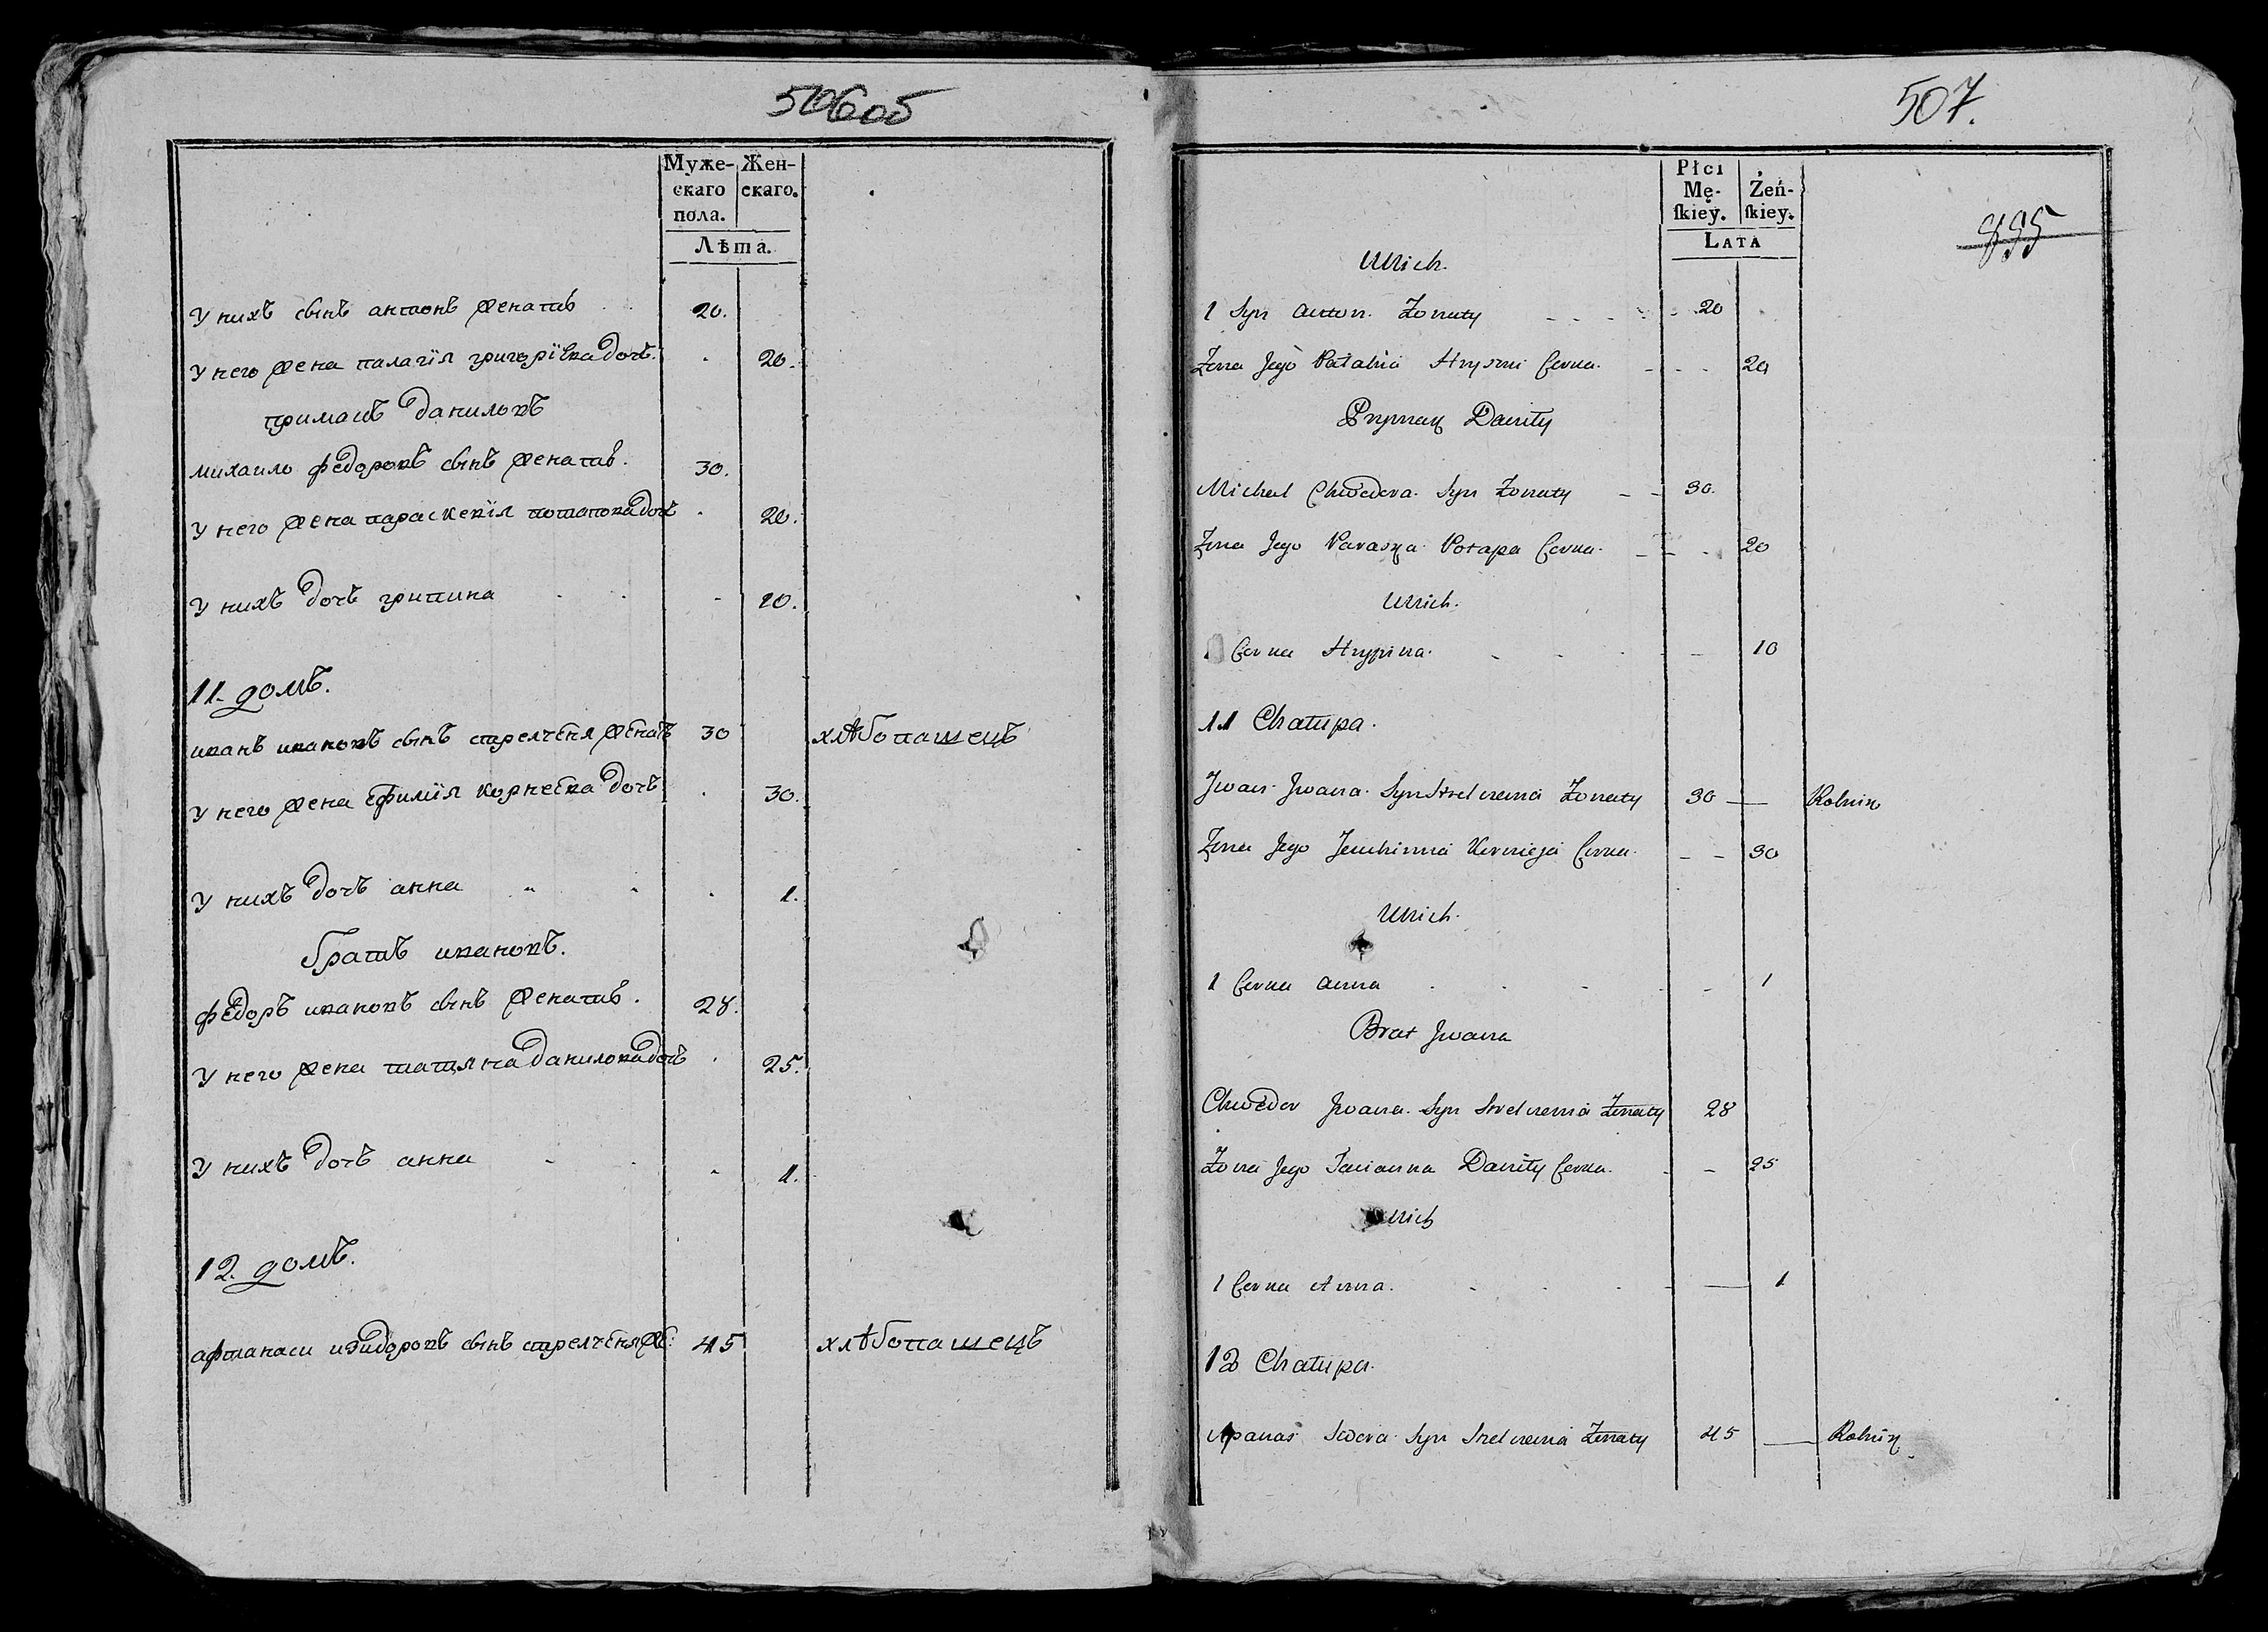 506об
Муже- Жен-
скаго скаго.
пола.
Лѣта.
У нихъ сынъ антонъ женатъ 20.
У него жена палагія григоріева дочь. 20.
примашъ даниловъ
михаило федоровъ сынъ женатъ. 30.
У него жена параскевія потапова дочь 20.
У нихъ дочь грипина 10.
11. домъ.
иванъ ивановъ сынъ стрелченя женатъ 30 хлѣбопашецъ
У него жена ефимія корнеева дочь 30.
У нихъ дочь анна 1.
братъ ивановъ.
федоръ ивановъ сынъ женатъ. 28.
У него жена татяна данилова дочь 25.
У нихъ дочь анна 1.
12. домъ.
афтанаси изидоровъ сынъ стрелченя же: 45 хлѣбопашецъ
507.
895
Płci
Mę- Żeń-
ſkiey. ſkiey.
LATA
U Nich.
1 Syn Anton Żonaty 20
Żona Jego Pałahia Hryszki Corka. 20
Prymak Daniły
Michał Chwedora Syn Żonaty 30.
Żona Jego Paraska Potapa Corka. 20
U Nich.
1 Corka Hrypina. 10
11 Chałupa.
Jwan Jwana Syn Strelczenia Żonaty 30 Rolnik
Żona Jego Jeuchimia Kornieja Corka. 30
U Nich.
1 Corka Anna 1
Brat Jwana
Chwedor Jwana Syn Strelczenia Żonaty 28
Żona Jego Tacianna Daniły Corka. 25
U Nich
1 Corka Anna. 1
12 Chałupa.
Apanas Sidora Syn Strelczenia Żonaty 45 Rolnik